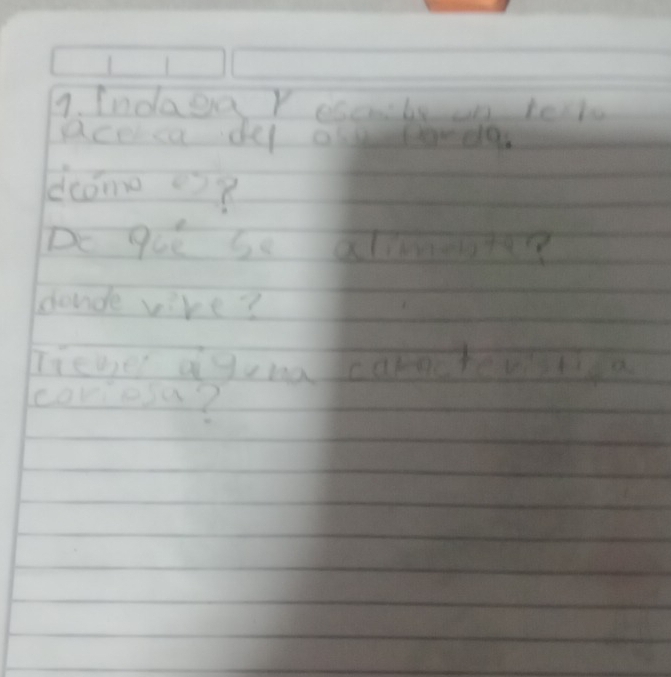 1. Indaga y escribe un texto
acerca del oso pardo.
dcómo es?
De qué se alimenta?
donde vive?
Tiene alguna caracteristica
coriosa?